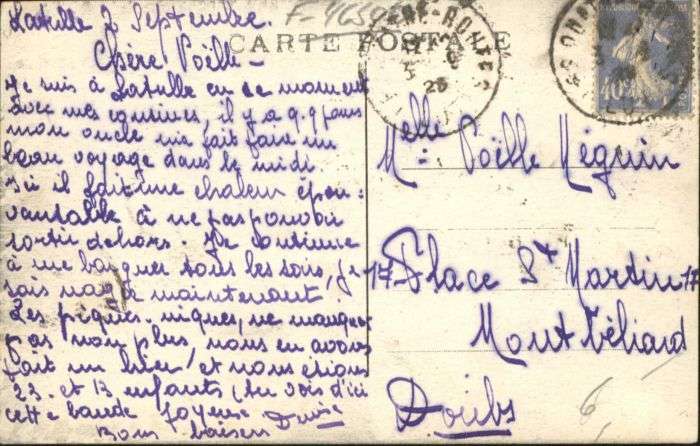 Latulle 2 Septembre.
Chère Poëlle -
Je suis à Latulle en ce moment
avec mes cousines, il y a q.q jours
mon oncle m'a fait faire un
beau voyage dans le midi
ici il fait une chaleur épou-
vantable à ne pas pouvoir
sortir dehors. Je continue
à me baigner tous les soirs, je
sais nager maintenant.
Les piques-niques, ne manquent
pas non plus, nous en avons
fait un hier, et nous étions
23. et 13 enfants, tu vois d'ici
cette bande joyeuse
Bons baisers
CARTE POSTALE
25
40
Melle Poëlle Méquin
17 Place St Martin 17
Montbéliard
Doubs